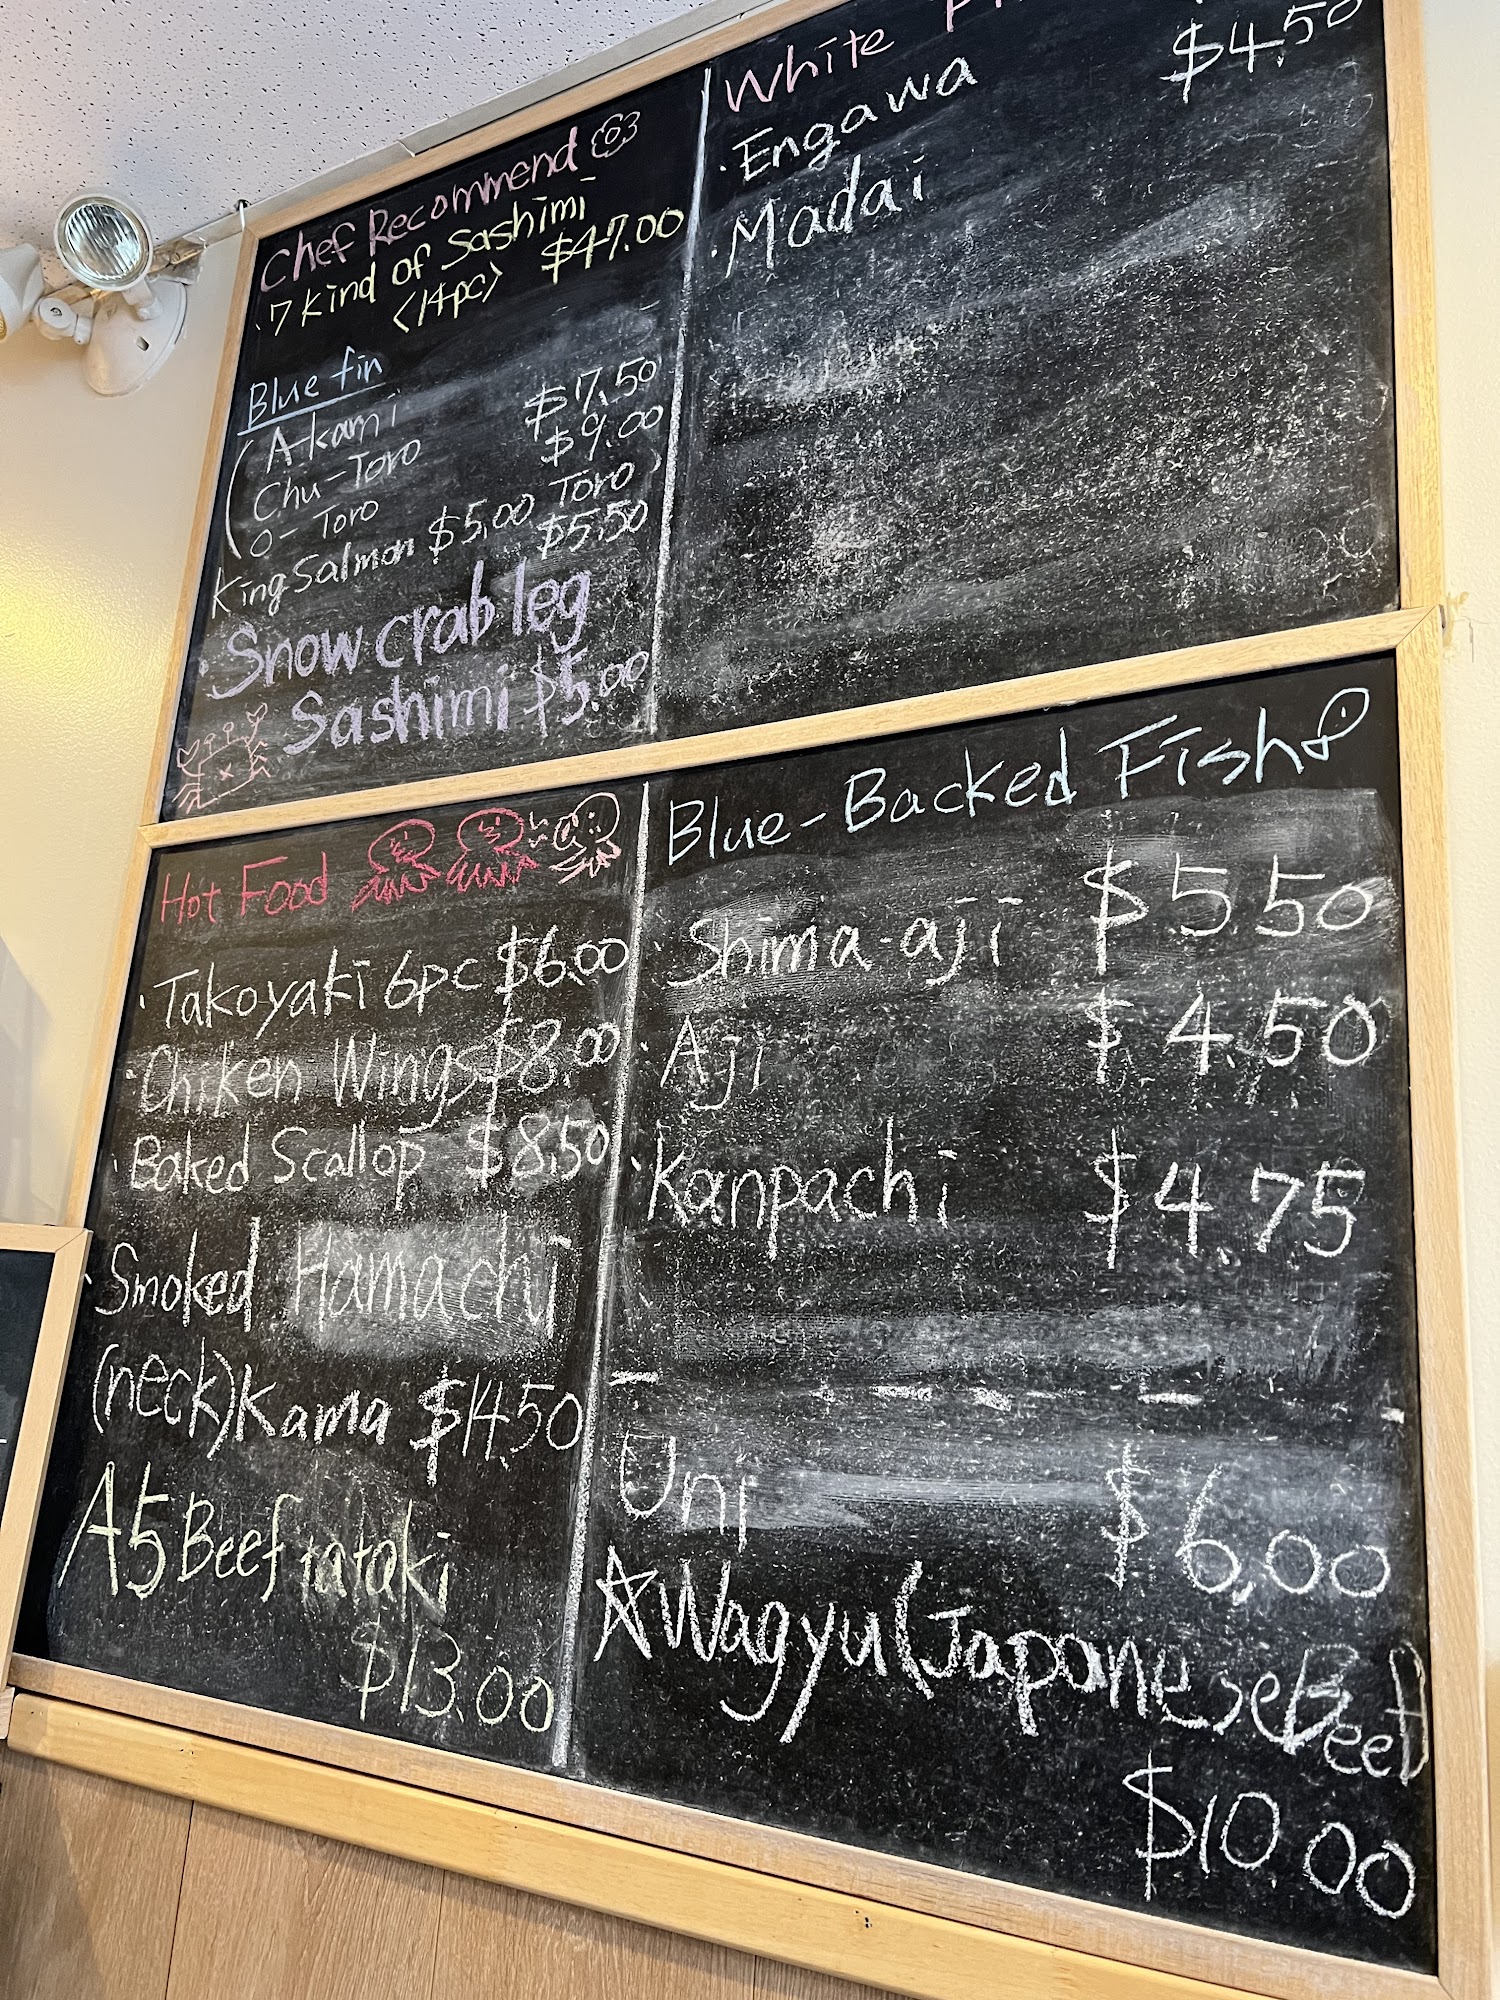 Chef Recommend
· 7 kind of Sashimi
<14pc> $47.00
Blue fin
A-kami
Chu-Toro $7.50
O-Toro $9.00
King Salmon $5.00 Toro
$5.50
· Snow crab leg
Sashimi $5.00
White
· Engawa $4.50
· Madai
Hot Food
· Takoyaki 6pc $6.00
· Chiken Wings $8.00
· Baked Scallop $8.50
· Smoked Hamachi
(neck) Kama $14.50
A5 Beef tataki
$13.00
Blue-Backed Fish
· Shima-aji $5.50
· Aji $4.50
· Kanpachi $4.75
Uni $6.00
☆ Wagyu (Japanese Beef)
$10.00